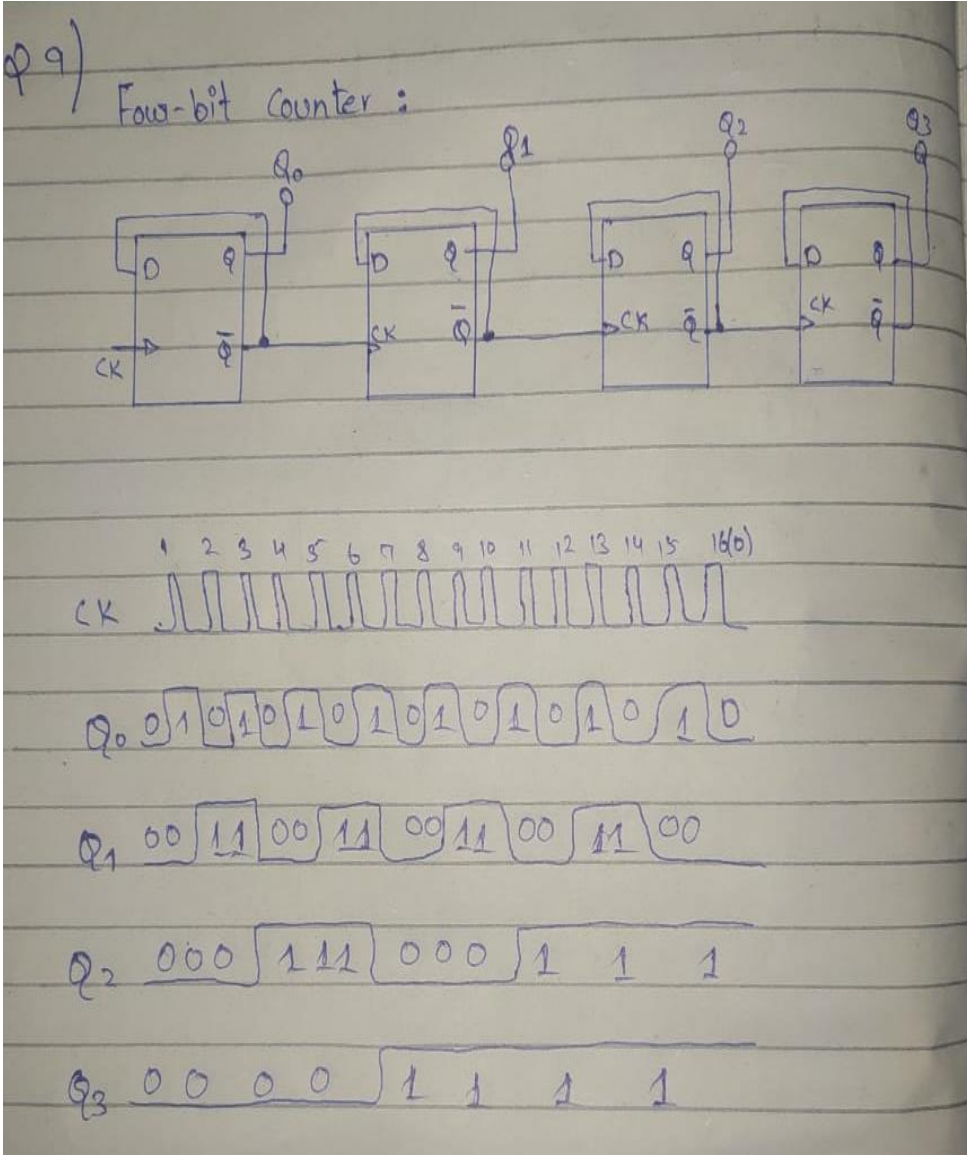 Q9)
Four-bit Counter :
Q0 Q1 Q2 Q3
D Q D Q D Q D Q
CK Q̅ CK Q̅ CK Q̅ CK Q̅
1 2 3 4 5 6 7 8 9 10 11 12 13 14 15 16(0)
CK
Q0 0 1 0 1 0 1 0 1 0 1 0 1 0 1 0 1 0
Q1 00 11 00 11 00 11 00 11 00
Q2 000 111 000 1 1 1
Q3 0 0 0 0 1 1 1 1